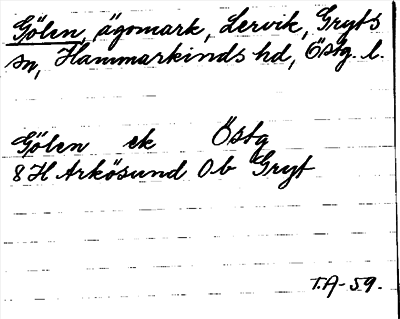 Gölen, ägomark, Lervik, Gryts
sn, Hammarkinds hd, Östg. l.
Gölen ek Östg
8 H Arkösund 0 b Gryt
T.A-59.